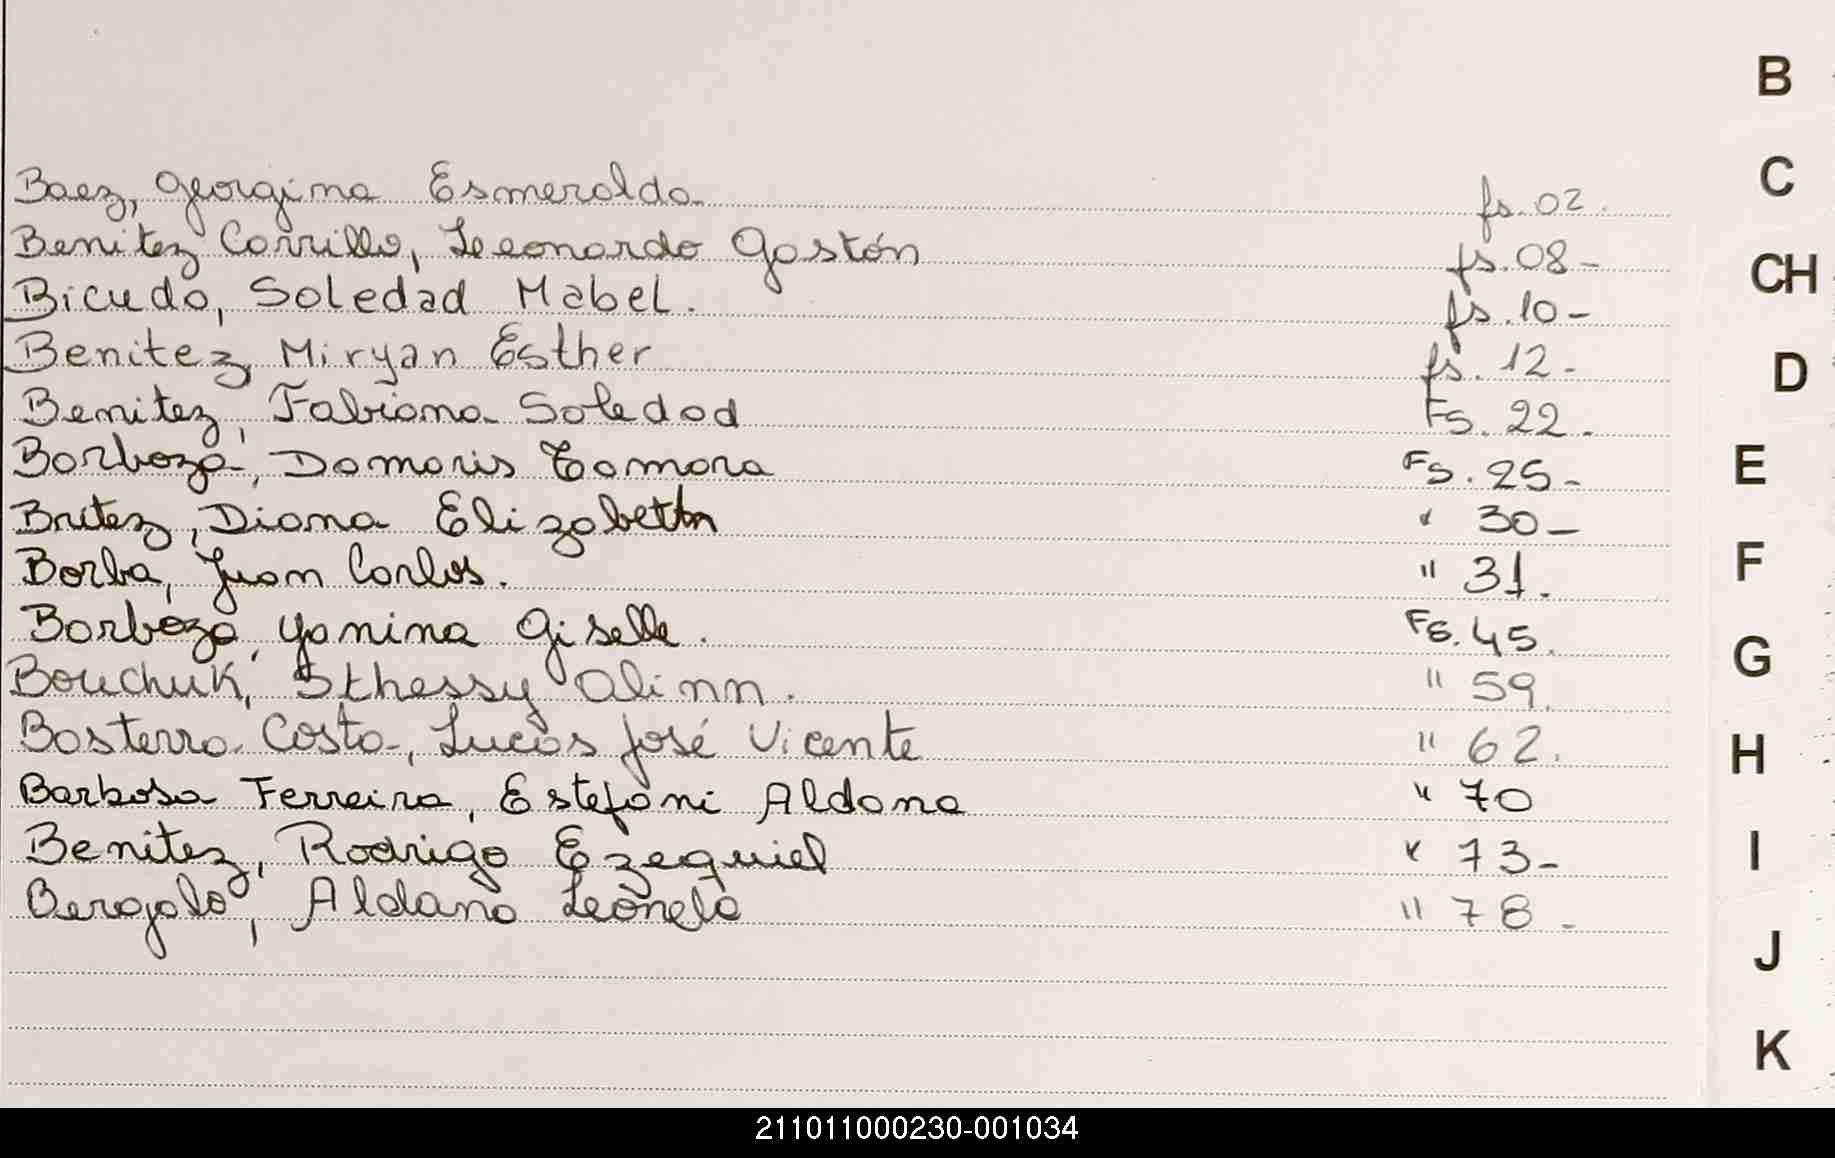 B
C
Baez, Georgina Esmeralda fs. 02.
Benitez Carrillo, Leonardo Gastón fs. 08-
CH
Bicudo, Soledad Mabel. fs. 10-
Benitez, Miryan Esther fs. 12-
D
Benitez, Fabiana Soledad Fs. 22.
Borboza, Damaris Tamara Fs. 25-
E
Britez, Diana Elizabeth " 30-
Borba, Juan Carlos. " 31.
F
Barboza, Yanina Giselle. Fs. 45.
G
Bouchuk, Sthessy Alinn. " 59.
Basterra Costa, Lucas José Vicente " 62.
H
Barbosa Ferreira, Estefani Aldana " 70
Benitez, Rodrigo Ezequiel " 73-
I
Leonela " 78-
J
K
211011000230-001034